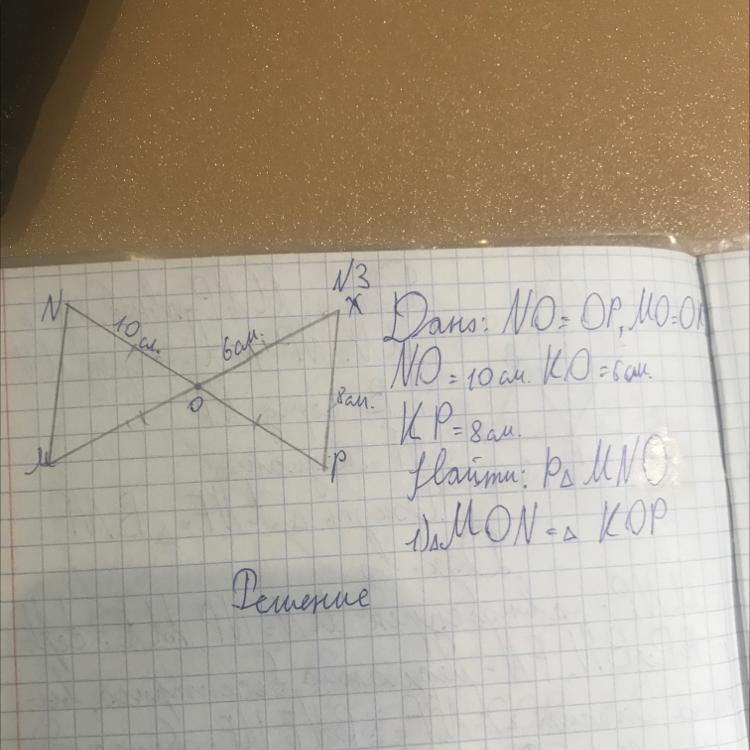 N3
N
10 см.
6 см.
K
O
8 см.
M
P
Дано: NO = OP, MO = OK
NO = 10 см. KO = 6 см.
KP = 8 см.
Найти: P△ MNO
1) △MON = △ KOP
Решение